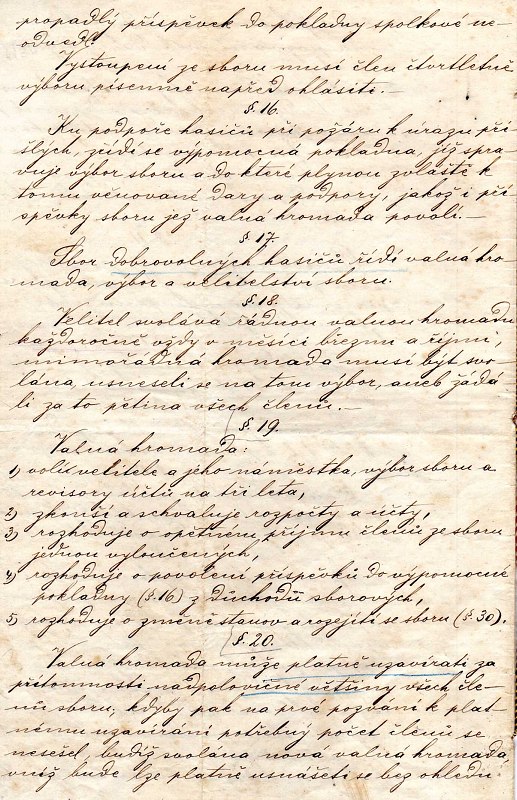 propadlý příspěvek do pokladny spolkové ne-
odvedl.
Vystoupení ze sboru musí člen čtvrtletně
výboru písemně napřed ohlásiti.—
§. 16.
Ku podpoře hasičů při požáru k úrazu při
šlých, zřídí se výpomocná pokladna, již spra-
vuje výbor sboru a do které plynou zvláště k
tomu věnované dary a podpory, jakož i pří
spěvky sboru jež valná hromada povolí.—
§ 17.
Sbor dobrovolných hasičů řídí valná hro-
mada, výbor a velitelství sboru.
§. 18.
Velitel svolává řádnou valnou hromadu
každoročně vždy v měsíci březnu a říjnu,
mimořádná hromada musí být svo-
lána, usneseli se na tom výbor, aneb žádá
li za to pětina všech členů.—
§. 19.
Valná hromada:
1) volí velitele a jeho náměstka, výbor sboru a
revisory účtů na tři léta,
2) zkouší a schvaluje rozpočty a účty,
3) rozhoduje o opětném příjmu členů ze sboru
jednou vyloučených,
4) rozhoduje o povolení příspěvků do výpomocné
pokladny (§. 16) z důchodů sborových,
5) rozhoduje o změně stanov a rozejití se sboru (§. 30).
§. 20.
Valná hromada může platně uzavírati za
přítomnosti nadpoloviční většiny všech čle-
nů sboru; kdyby pak na prvé pozvání k plat
nému uzavírání potřebný počet členů se
nesešel, budiž svolána nová valná hromada,
v níž bude lze platně usnášeti se bez ohledu